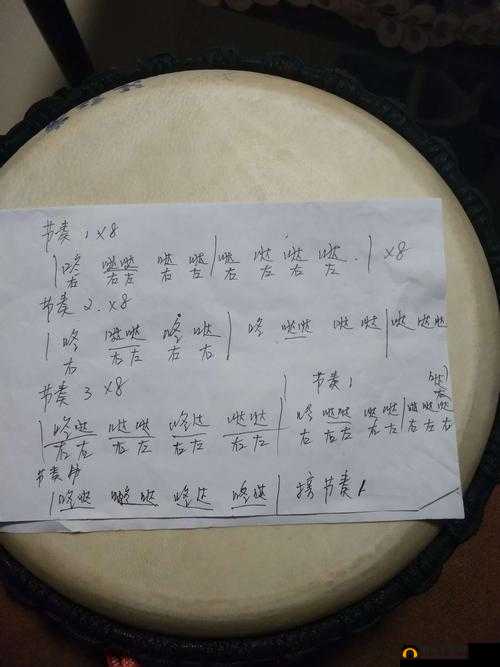 节奏1 ×8
| 咚 哒哒 哒 哒 | 哒 哒 哒 哒 | ×8
右 右左 右 左 右 左 右 左
节奏2 ×8
| 咚 哒哒 咚 哒 | 咚 哒哒 哒哒 | 哒 哒哒
右 右左 右 右
节奏3 ×8 | 节奏1
| 咚哒 哒哒 咚达 哒哒 | 咚 哒哒 哒哒 | 哒哒哒
右左 右左 右左 右左 右 右左 右左
节奏
| 咚哒 哒哒 咚达 咚哒 | 接节奏1